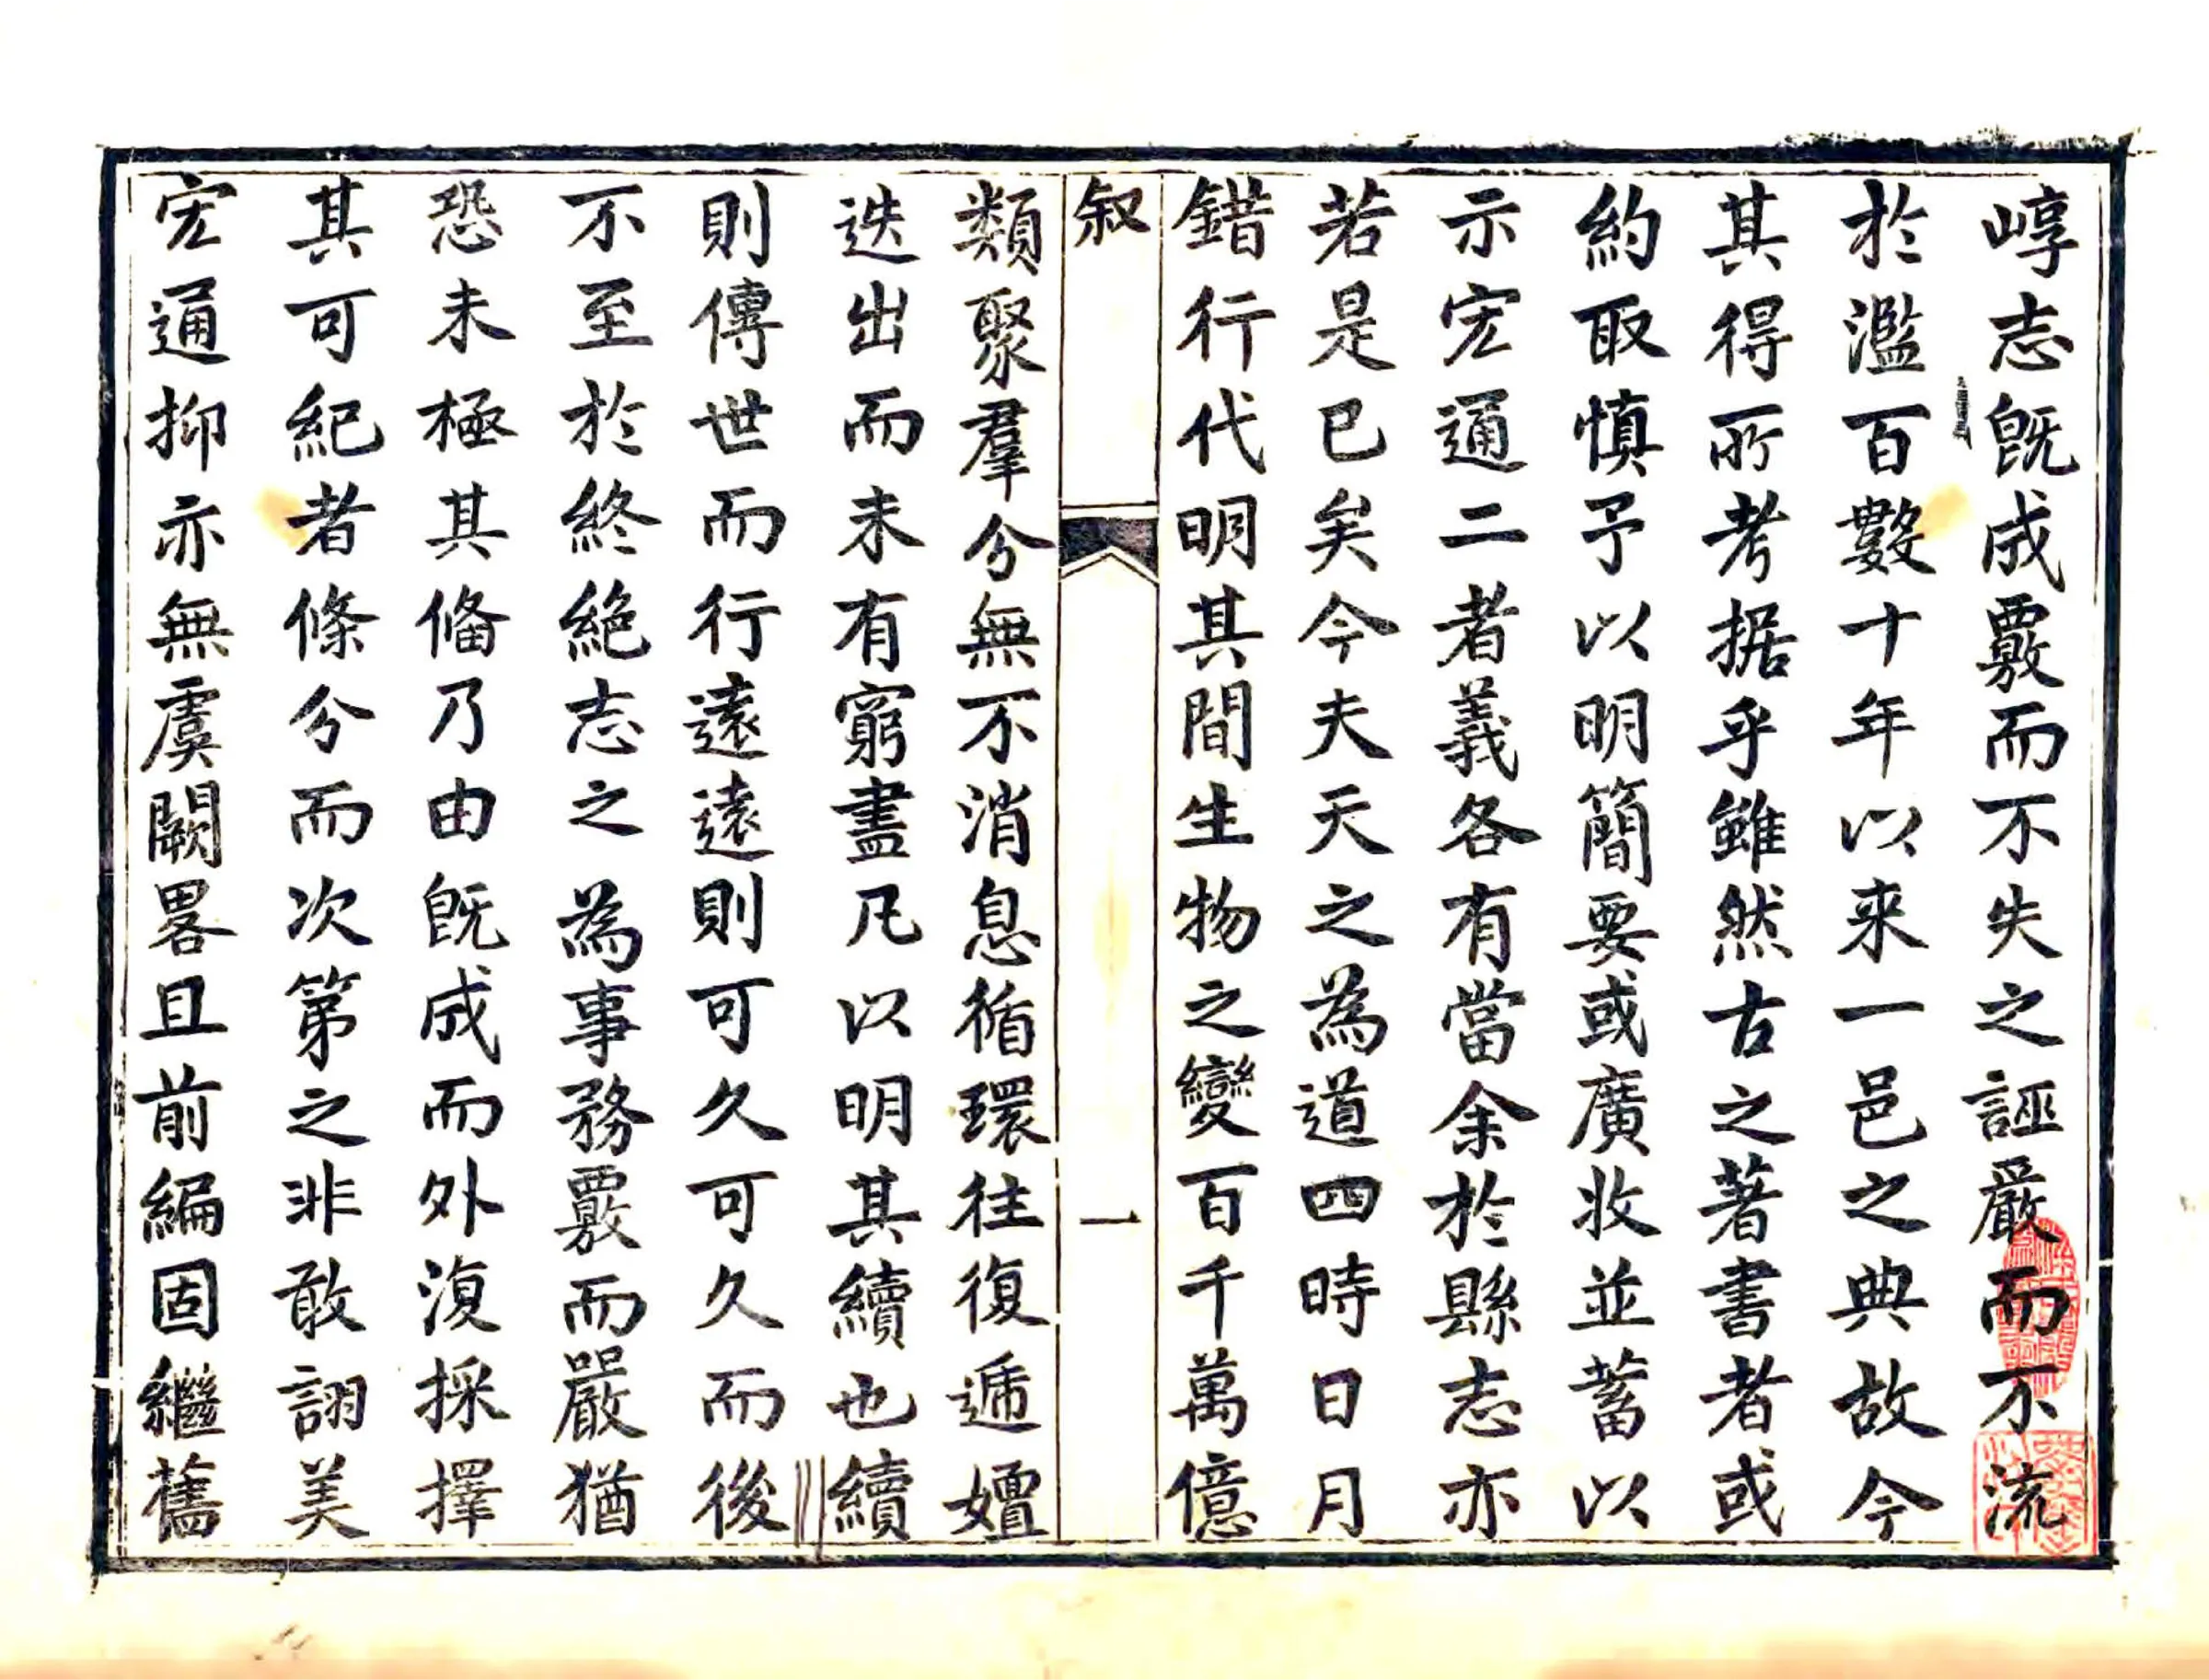 崞志旣成覈而不失之誣嚴而不流
於濫百數十年以来一邑之典故今
其得所考据乎雖然古之著書者或
約取慎予以明簡要或廣收並蓄以
示宏通二者義各有當余於縣志亦
若是已矣今夫天之為道四時日月
錯行代明其間生物之變百千萬億
叙
一
類聚羣分無不消息循環往復遞嬗
迭出而未有窮盡凡以明其續也續
則傳世而行遠遠則可久可久而後
不至於終絕志之為事務覈而嚴猶
恐未極其俻乃由旣成而外復採擇
其可紀者條分而次第之非敢詡美
宏通抑亦無虞闕畧且前編固繼舊